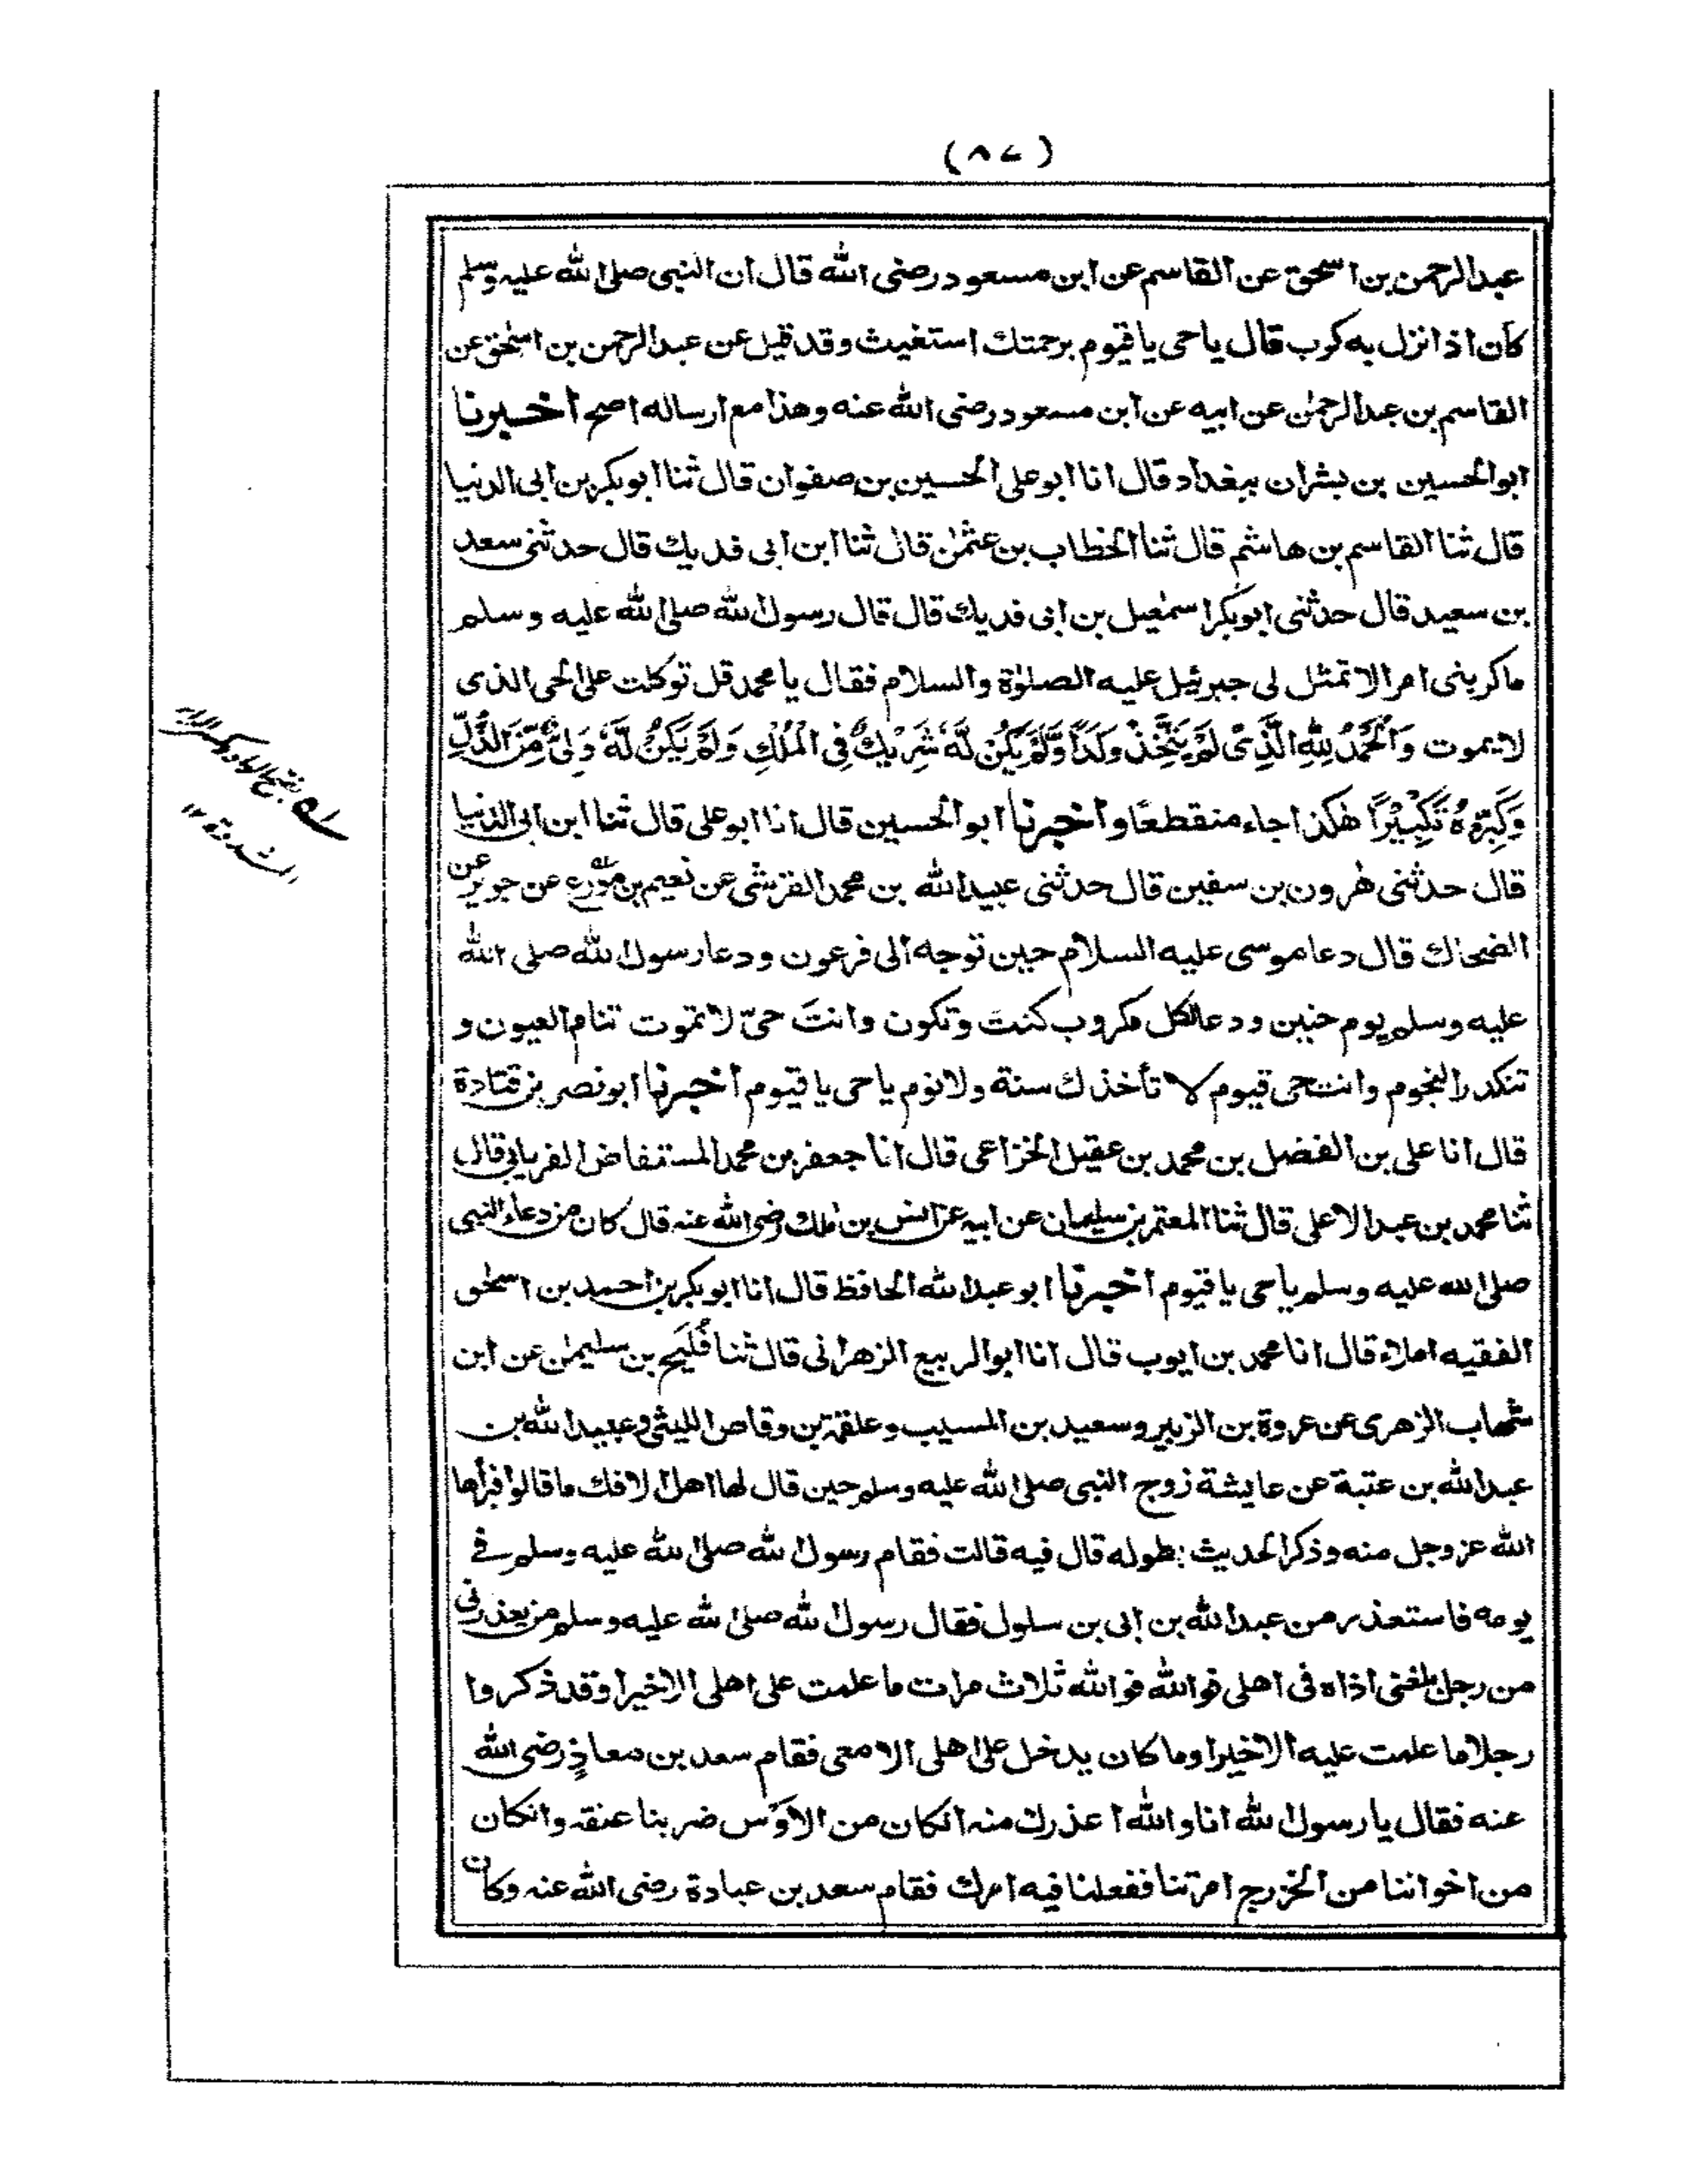 (٨٧)
عبدالرحمن بن اسحٰق عن القاسم عن ابن مسعود رضى الله قال ان النبى صلى الله عليه وسلم
كان اذا نزل به كرب قال يا حى يا قيوم برحمتك استغيث وقد قيل عن عبدالرحمن بن اسحٰق عن
القاسم بن عبدالرحمٰن عن ابيه عن ابن مسعود رضى الله عنه وهذا مع ارساله اصح اخبرنا
ابوالحسين بن بشران ببغداد قال انا ابو على الحسين بن صفوان قال ثنا ابوبكر بن ابى الدنيا
قال ثنا القاسم بن هاشم قال ثنا الخطاب بن عثمٰن قال ثنا ابن ابى فديك قال حدثنى سعد
بن سعيد قال حدثنى ابوبكر اسمٰعيل بن ابى فديك قال قال رسول الله صلى الله عليه وسلم
ما كربنى امر الا تمثل لى جبرئيل عليه الصلوٰة والسلام فقال يا محمد قل توكلت على الحى الذى
لا يموت وَالْحَمْدُ لِلّٰهِ الَّذِىْ لَمْ يَتَّخِذْ وَلَدًا وَّلَمْ يَكُنْ لَّهٗ شَرِيْكٌ فِى الْمُلْكِ وَلَمْ يَكُنْ لَّهٗ وَلِىٌّ مِّنَ الذُّلِّ
وَكَبِّرْهُ تَكْبِيْرًا هٰكذا جاء منقطعًا واخبرنا ابو الحسين قال انا ابو على قال ثنا ابن ابى الدنيا
قال حدثنى هٰرون بن سفين قال حدثنى عبيدالله بن محمد القرشى عن نعيم بن مؤرع عن جويبر عن
الضحاك قال دعا موسى عليه السلام حين توجه الى فرعون ودعا رسول الله صلى الله
عليه وسلم يوم حنين ودعا لكل مكروب كنت وتكون وانتَ حىّ لا تموت تنام العيون و
تنكدر النجوم وانت حى قيوم لا تأخذك سنة ولا نوم يا حى يا قيوم اخبرنا ابو نصر بن قتادة
قال انا على بن الفضل بن محمد بن عقيل الخزاعى قال انا جعفر بن محمد المستفاض الفريابى قال
ثنا محمد بن عبد الاعلى قال ثنا المعتمر بن سليمان عن ابيه عن انس بن مٰلك رضى الله عنه قال كان من دعاء النبى
صلى الله عليه وسلم يا حى يا قيوم اخبرنا ابو عبدالله الحافظ قال انا ابوبكر بن احمد بن اسحٰق
الفقيه املاء قال انا محمد بن ايوب قال انا ابوالربيع الزهرانى قال ثنا فُلَيح بن سليمٰن عن ابن
شهاب الزهرى عن عروة بن الزبير وسعيد بن المسيب وعلقمة بن وقاص الليثى وعبيدالله بن
عبدالله بن عتبة عن عايشة زوج النبى صلى الله عليه وسلم حين قال لها اهل الافك ما قالوا فبرأها
الله عزوجل منه وذكر الحديث بطوله قال فيه قالت فقام رسول الله صلى الله عليه وسلم فى
يومه فاستعذر من عبدالله بن ابى بن سلول فقال رسول الله صلى الله عليه وسلم من يعذرنى
من رجل بلغنى اذاه فى اهلى فوالله فوالله ثلاث مرات ما علمت على اهلى الا خيرا وقد ذكروا
رجلا ما علمت عليه الا خيرا وما كان يدخل على اهلى الا معى فقام سعد بن معاذٍ رضى الله
عنه فقال يا رسول الله انا والله اعذرك منه انكان من الاَوس ضربنا عنقه وانكان
من اخواننا من الخزرج امرتنا ففعلنا فيه امرك فقام سعد بن عبادة رضى الله عنه وكان
بفتح الواو وكسر الراء
المشددة ١٢